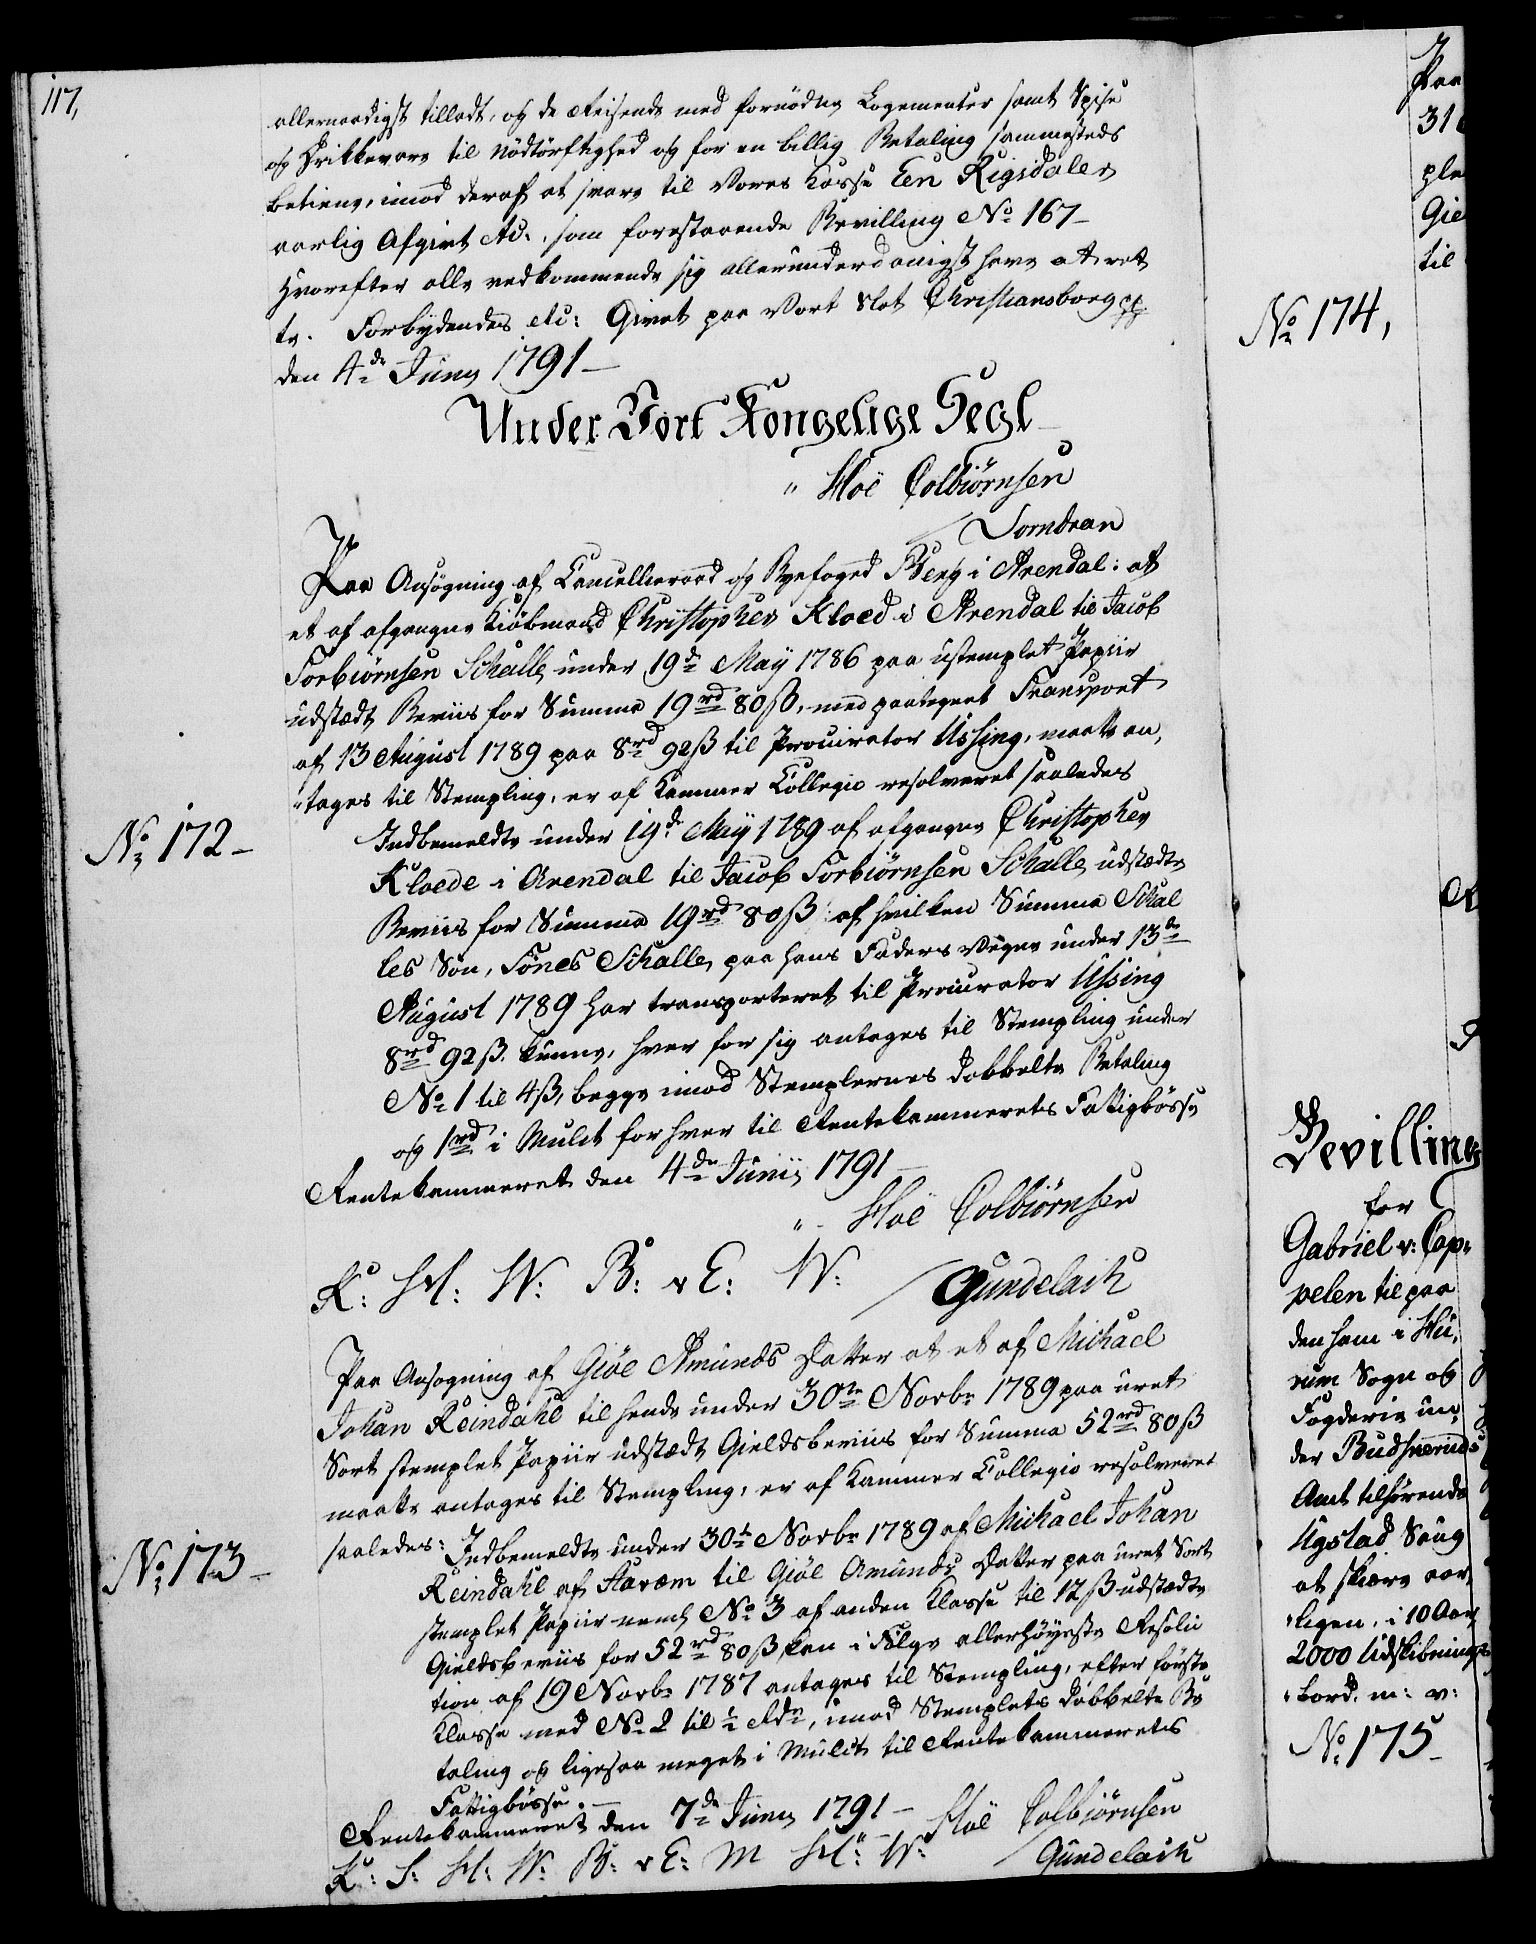 117,
allernaadigst tilladt, og de Reisende med fornödne Logementer samt Spise
og Drikkevare til Nödtörftighed og for en billig Betaling sammesteds
betiene, imod deraf at svare til Vores Casse Een Rigsdaler
aarlig Afgivt etc., som forestaaende Bevilling No 167-
Hvorefter alle vedkommende sig allerunderdanigst have at ret
te. Forbydendes etc: Givet paa Vort Slot Christiansborg
den 4de Juny 1791-
Under Vort Kongelige Segl
" Hoë Colbiörnsen
Lorndran
Paa Ansögning af Cancellieraad og Byefoged Berg i Arendal: at
et af afgangne Kiöbmand Christopher Kloed i Arendal til Jacob
Torbiörnsen Schalle, under 19de May 1786 paa ustemplet Papiir
udstædt Beviis for Summa 19rd 80ß, med paategnet Transport
af 13 August 1789 paa 8rd 92ß til Procurator Ussing, maatte an,
"tages til Stempling, er af Kammer Collegio resolveret saaledes
No 172-
Indbemeldte under 19de May 1789 af afgangne Christopher
Kloede i Arendal til Jacob Torbiörnsen Schalle, udstædte
Beviis for Summa 19rd 80ß: af hvilken Summa Schal
les Sön, Tönes Schalle, paa hans Faders Vegne under 13de
August 1789 har transporteret til Procurator Ussing
8rd 92ß. kunne, hver for sig antages til Stempling under
No 1 til 4ß, begge imod Stemplernes dobbelte Betaling
og 1rd i Mulct for hver til Rentekammerets Fattigbösse
Rentekammeret den 4de Junii, 1791-
" Hoë Colbiörnsen
K: H: W: B: v E: W: Gundelach
Paa Ansögning af Giöe Amunds Datter at et af Michael
Johan Reindahl til hende under 30te Novbr 1789 paa uret
Sort stemplet Papiir udstædt Gieldsbeviis for Summa 52rd 80ß
maatte antages til Stempling, er af Kammer Collegio resolveret
saaledes: Indbemeldte under 30te Novbr 1789 af Michael Johan
No 173-
Reindahl af til Giöe Amunds Datter paa uret Sort
stemplet Papiir neml. No 3 af anden Klasse til 12ß udstædte
Gieldsbeviis for 52rd 80ß, kan i Fölge allerhöyeste Resolu
tion af 19 Novbr 1787 antages til Stempling, efter förste
Klasse med No 2 til ½ Rdr, imod Stemplets dobbelte Be
taling og ligesaa meget i Mulct til Rentekammerets
Fattigbösse.-
Rentekammeret den 7de Juny 1791- Hoë Colbiörnsen
K: S: H: W: B: v E: M H: W: Gundelach
Paa
31
ple
Gie
til
No 174,
Bevilling
for
Gabriel v: Cap,
pelen til paa
den ham i Hu,
rum Sogn og
Fogderie un,
der Budsherruds
Amt tilhörende
Ugstad Saug
at skiære aar,
"ligen, i 10 Aar,
2000 Udskibnings
"bord. m: v:
No 175-